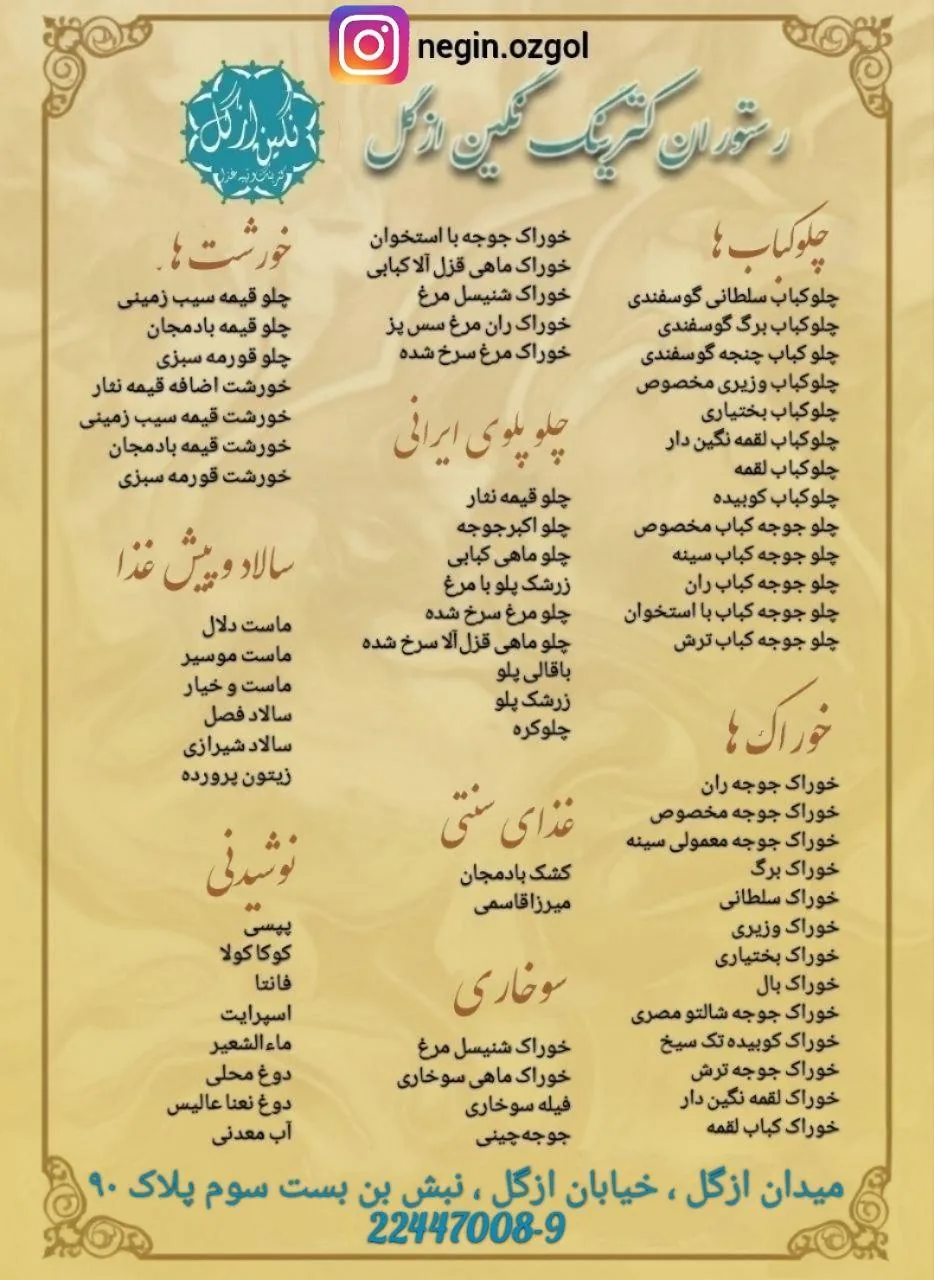 negin.ozgol
رستوران کترینگ نگین ازگل
نگین ازگل
کترینگ و تهیه غذا
چلوکباب ها
چلوکباب سلطانی گوسفندی
چلوکباب برگ گوسفندی
چلو کباب چنجه گوسفندی
چلوکباب وزیری مخصوص
چلوکباب بختیاری
چلوکباب لقمه نگین دار
چلوکباب لقمه
چلوکباب کوبیده
چلو جوجه کباب مخصوص
چلو جوجه کباب سینه
چلو جوجه کباب ران
چلو جوجه کباب با استخوان
چلو جوجه کباب ترش
خوراک ها
خوراک جوجه ران
خوراک جوجه مخصوص
خوراک جوجه معمولی سینه
خوراک برگ
خوراک سلطانی
خوراک وزیری
خوراک بختیاری
خوراک بال
خوراک جوجه شالتو مصری
خوراک کوبیده تک سیخ
خوراک جوجه ترش
خوراک لقمه نگین دار
خوراک کباب لقمه
خوراک جوجه با استخوان
خوراک ماهی قزل آلا کبابی
خوراک شنیسل مرغ
خوراک ران مرغ سس پز
خوراک مرغ سرخ شده
چلو پلوی ایرانی
چلو قیمه نثار
چلو اکبرجوجه
چلو ماهی کبابی
زرشک پلو با مرغ
چلو مرغ سرخ شده
چلو ماهی قزل‌آلا سرخ شده
باقالی پلو
زرشک پلو
چلوکره
غذای سنتی
کشک بادمجان
میرزاقاسمی
سوخاری
خوراک شنیسل مرغ
خوراک ماهی سوخاری
فیله سوخاری
جوجه‌چینی
خورشت ها
چلو قیمه سیب زمینی
چلو قیمه بادمجان
چلو قورمه سبزی
خورشت اضافه قیمه نثار
خورشت قیمه سیب زمینی
خورشت قیمه بادمجان
خورشت قورمه سبزی
سالاد و پیش غذا
ماست دلال
ماست موسیر
ماست و خیار
سالاد فصل
سالاد شیرازی
زیتون پرورده
نوشیدنی
پپسی
کوکا کولا
فانتا
اسپرایت
ماءالشعیر
دوغ محلی
دوغ نعنا عالیس
آب معدنی
میدان ازگل ، خیابان ازگل ، نبش بن بست سوم پلاک ۹۰
22447008-9